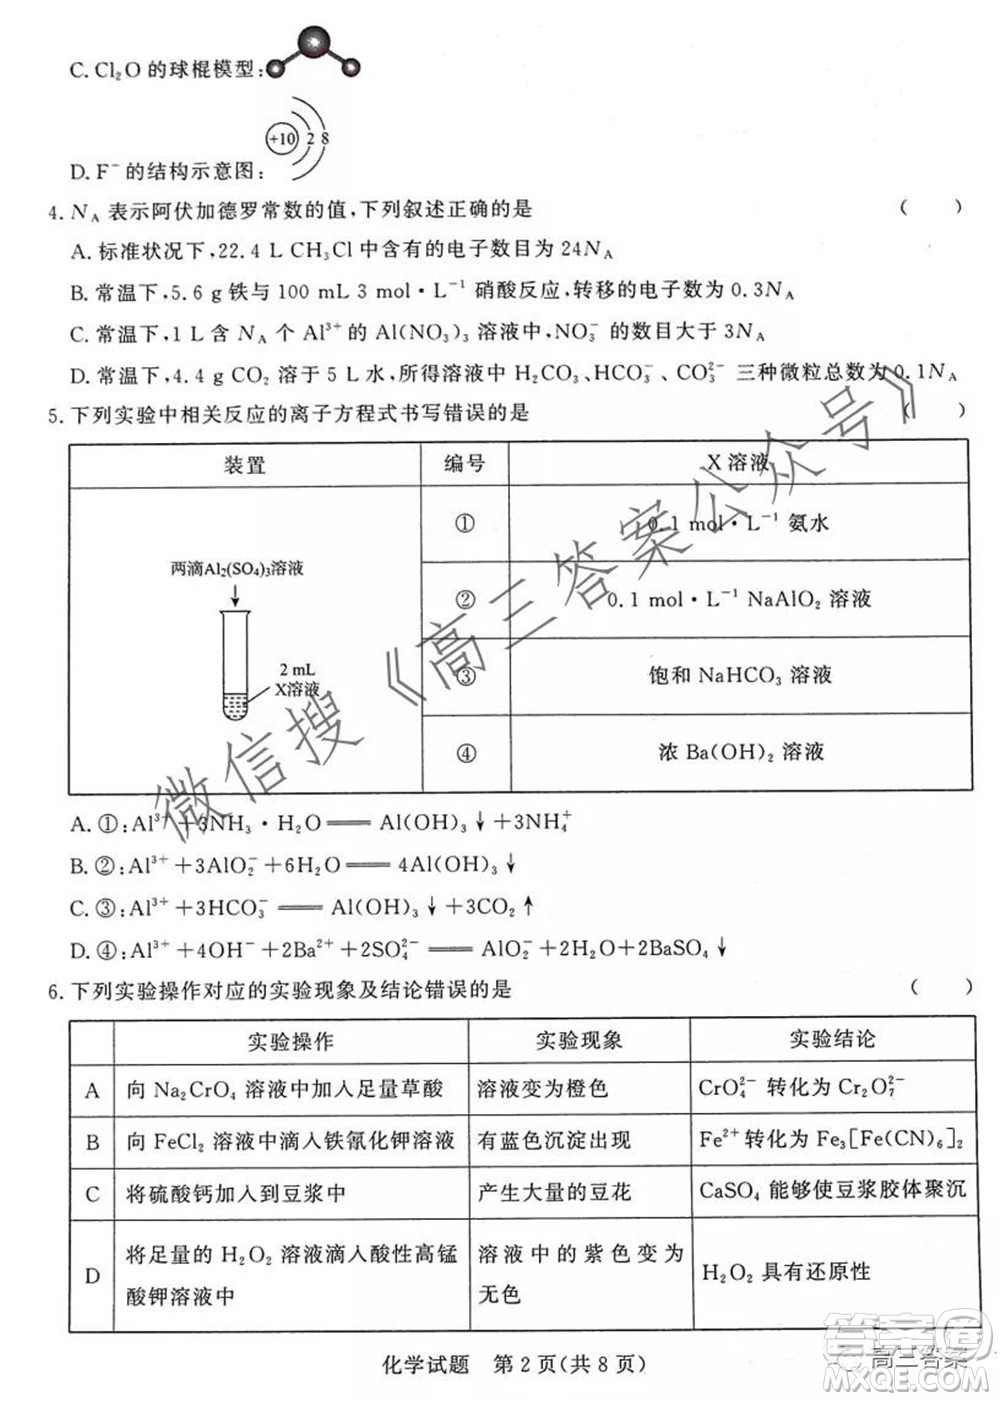 C. Cl₂O 的球棍模型:
+10 2 8
D. F⁻ 的结构示意图:
4. N_A 表示阿伏加德罗常数的值,下列叙述正确的是 ( )
A. 标准状况下,22.4 L CH₃Cl 中含有的电子数目为 24N_A
B. 常温下,5.6 g 铁与 100 mL 3 mol·L⁻¹ 硝酸反应,转移的电子数为 0.3N_A
C. 常温下,1 L 含 N_A 个 Al³⁺ 的 Al(NO₃)₃ 溶液中,NO₃⁻ 的数目大于 3N_A
D. 常温下,4.4 g CO₂ 溶于 5 L 水,所得溶液中 H₂CO₃、HCO₃⁻、CO₃²⁻ 三种微粒总数为 0.1N_A
5. 下列实验中相关反应的离子方程式书写错误的是 ( )
装置 编号 X 溶液
两滴Al₂(SO₄)₃溶液
2 mL
X溶液
① 0.1 mol·L⁻¹ 氨水
② 0.1 mol·L⁻¹ NaAlO₂ 溶液
③ 饱和 NaHCO₃ 溶液
④ 浓 Ba(OH)₂ 溶液
A. ①:Al³⁺+3NH₃·H₂O══Al(OH)₃↓+3NH₄⁺
B. ②:Al³⁺+3AlO₂⁻+6H₂O══4Al(OH)₃↓
C. ③:Al³⁺+3HCO₃⁻══Al(OH)₃↓+3CO₂↑
D. ④:Al³⁺+4OH⁻+2Ba²⁺+2SO₄²⁻══AlO₂⁻+2H₂O+2BaSO₄↓
6. 下列实验操作对应的实验现象及结论错误的是 ( )
实验操作 实验现象 实验结论
A 向 Na₂CrO₄ 溶液中加入足量草酸 溶液变为橙色 CrO₄²⁻ 转化为 Cr₂O₇²⁻
B 向 FeCl₂ 溶液中滴入铁氰化钾溶液 有蓝色沉淀出现 Fe²⁺转化为 Fe₃[Fe(CN)₆]₂
C 将硫酸钙加入到豆浆中 产生大量的豆花 CaSO₄ 能够使豆浆胶体聚沉
D 将足量的 H₂O₂ 溶液滴入酸性高锰酸钾溶液中 溶液中的紫色变为无色 H₂O₂ 具有还原性
化学试题 第 2 页(共 8 页)
微信搜《高三答案公众号》
高三答案
答案圈
MXQE.COM